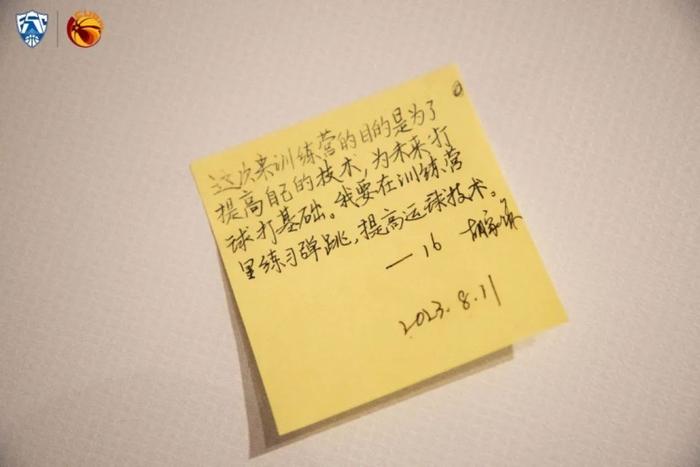 这次来训练营的目的是为了
提高自己的技术，为未来打
球打基础。我要在训练营
里练习弹跳，提高运球技术。
—16 胡家
2023.8.11